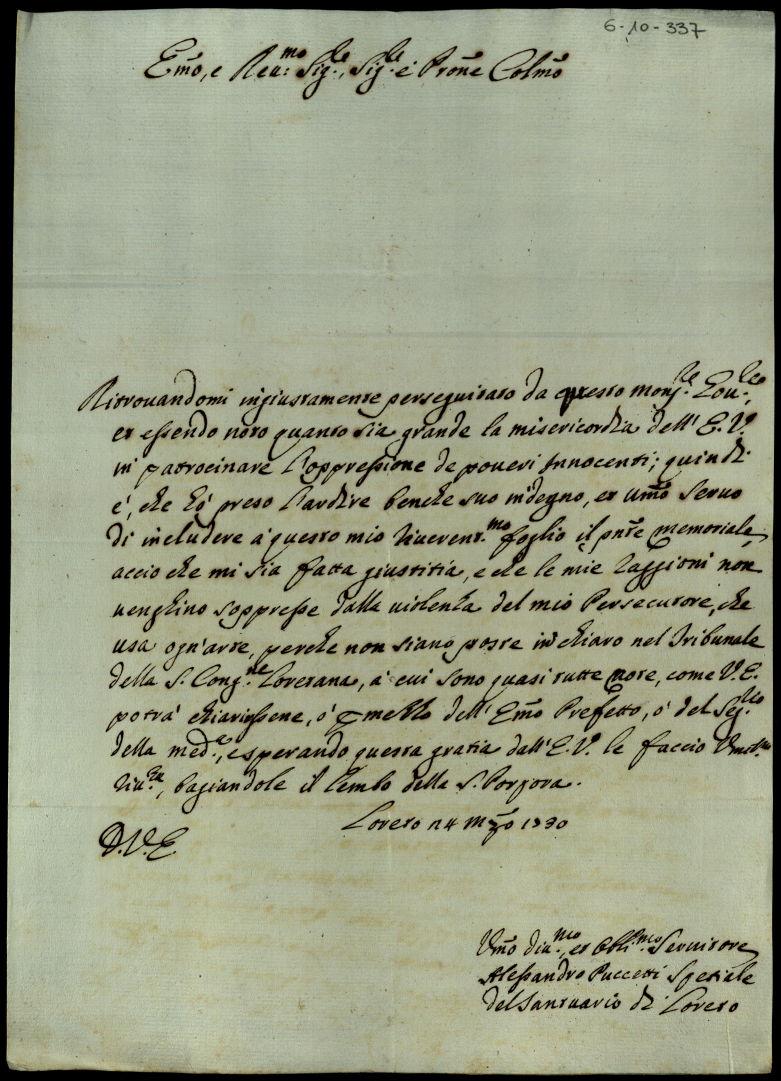 6-10-337
Emo, e Reu:mo Sig.re, Sig.re e Prone Colmo
Ritrouandomi ingiustamente perseguitato da questo Monsre
et essendo noto quanto sia grande la misericordia dell' E. V.
in patrocinare l'oppressione de poueri Innocenti; quindi
é, che hó preso l'ardire benche suo indegno, et Umo Seruo
di includere á questo mio riuerent.mo foglio il pnte memoriale,
accio che mi sia fatta giustitia, e che le mie raggioni non
uenghino soppresse dalla uiolenza del mio Persecutore, che
usa ogn'arte, perche non siano poste in chiaro nel Tribunale
della S. Cong.ne Loretana, á cui sono quasi tutte note, come V. E.
potrá chiarirsene, ó p mezzo dell' Emo Prefetto, ó del Seg.rio
della med.a, e sperando questa gratia dall' E. V. le faccio
riu.za, bagiandole il lembo della S. Porpora.
Loreto li 4 Mzo 1730
D. V. E.
Umo diu.mo, et Obli.mo Seruitore
Alessandro Puccetti Spetiale
del Santuario di Loreto